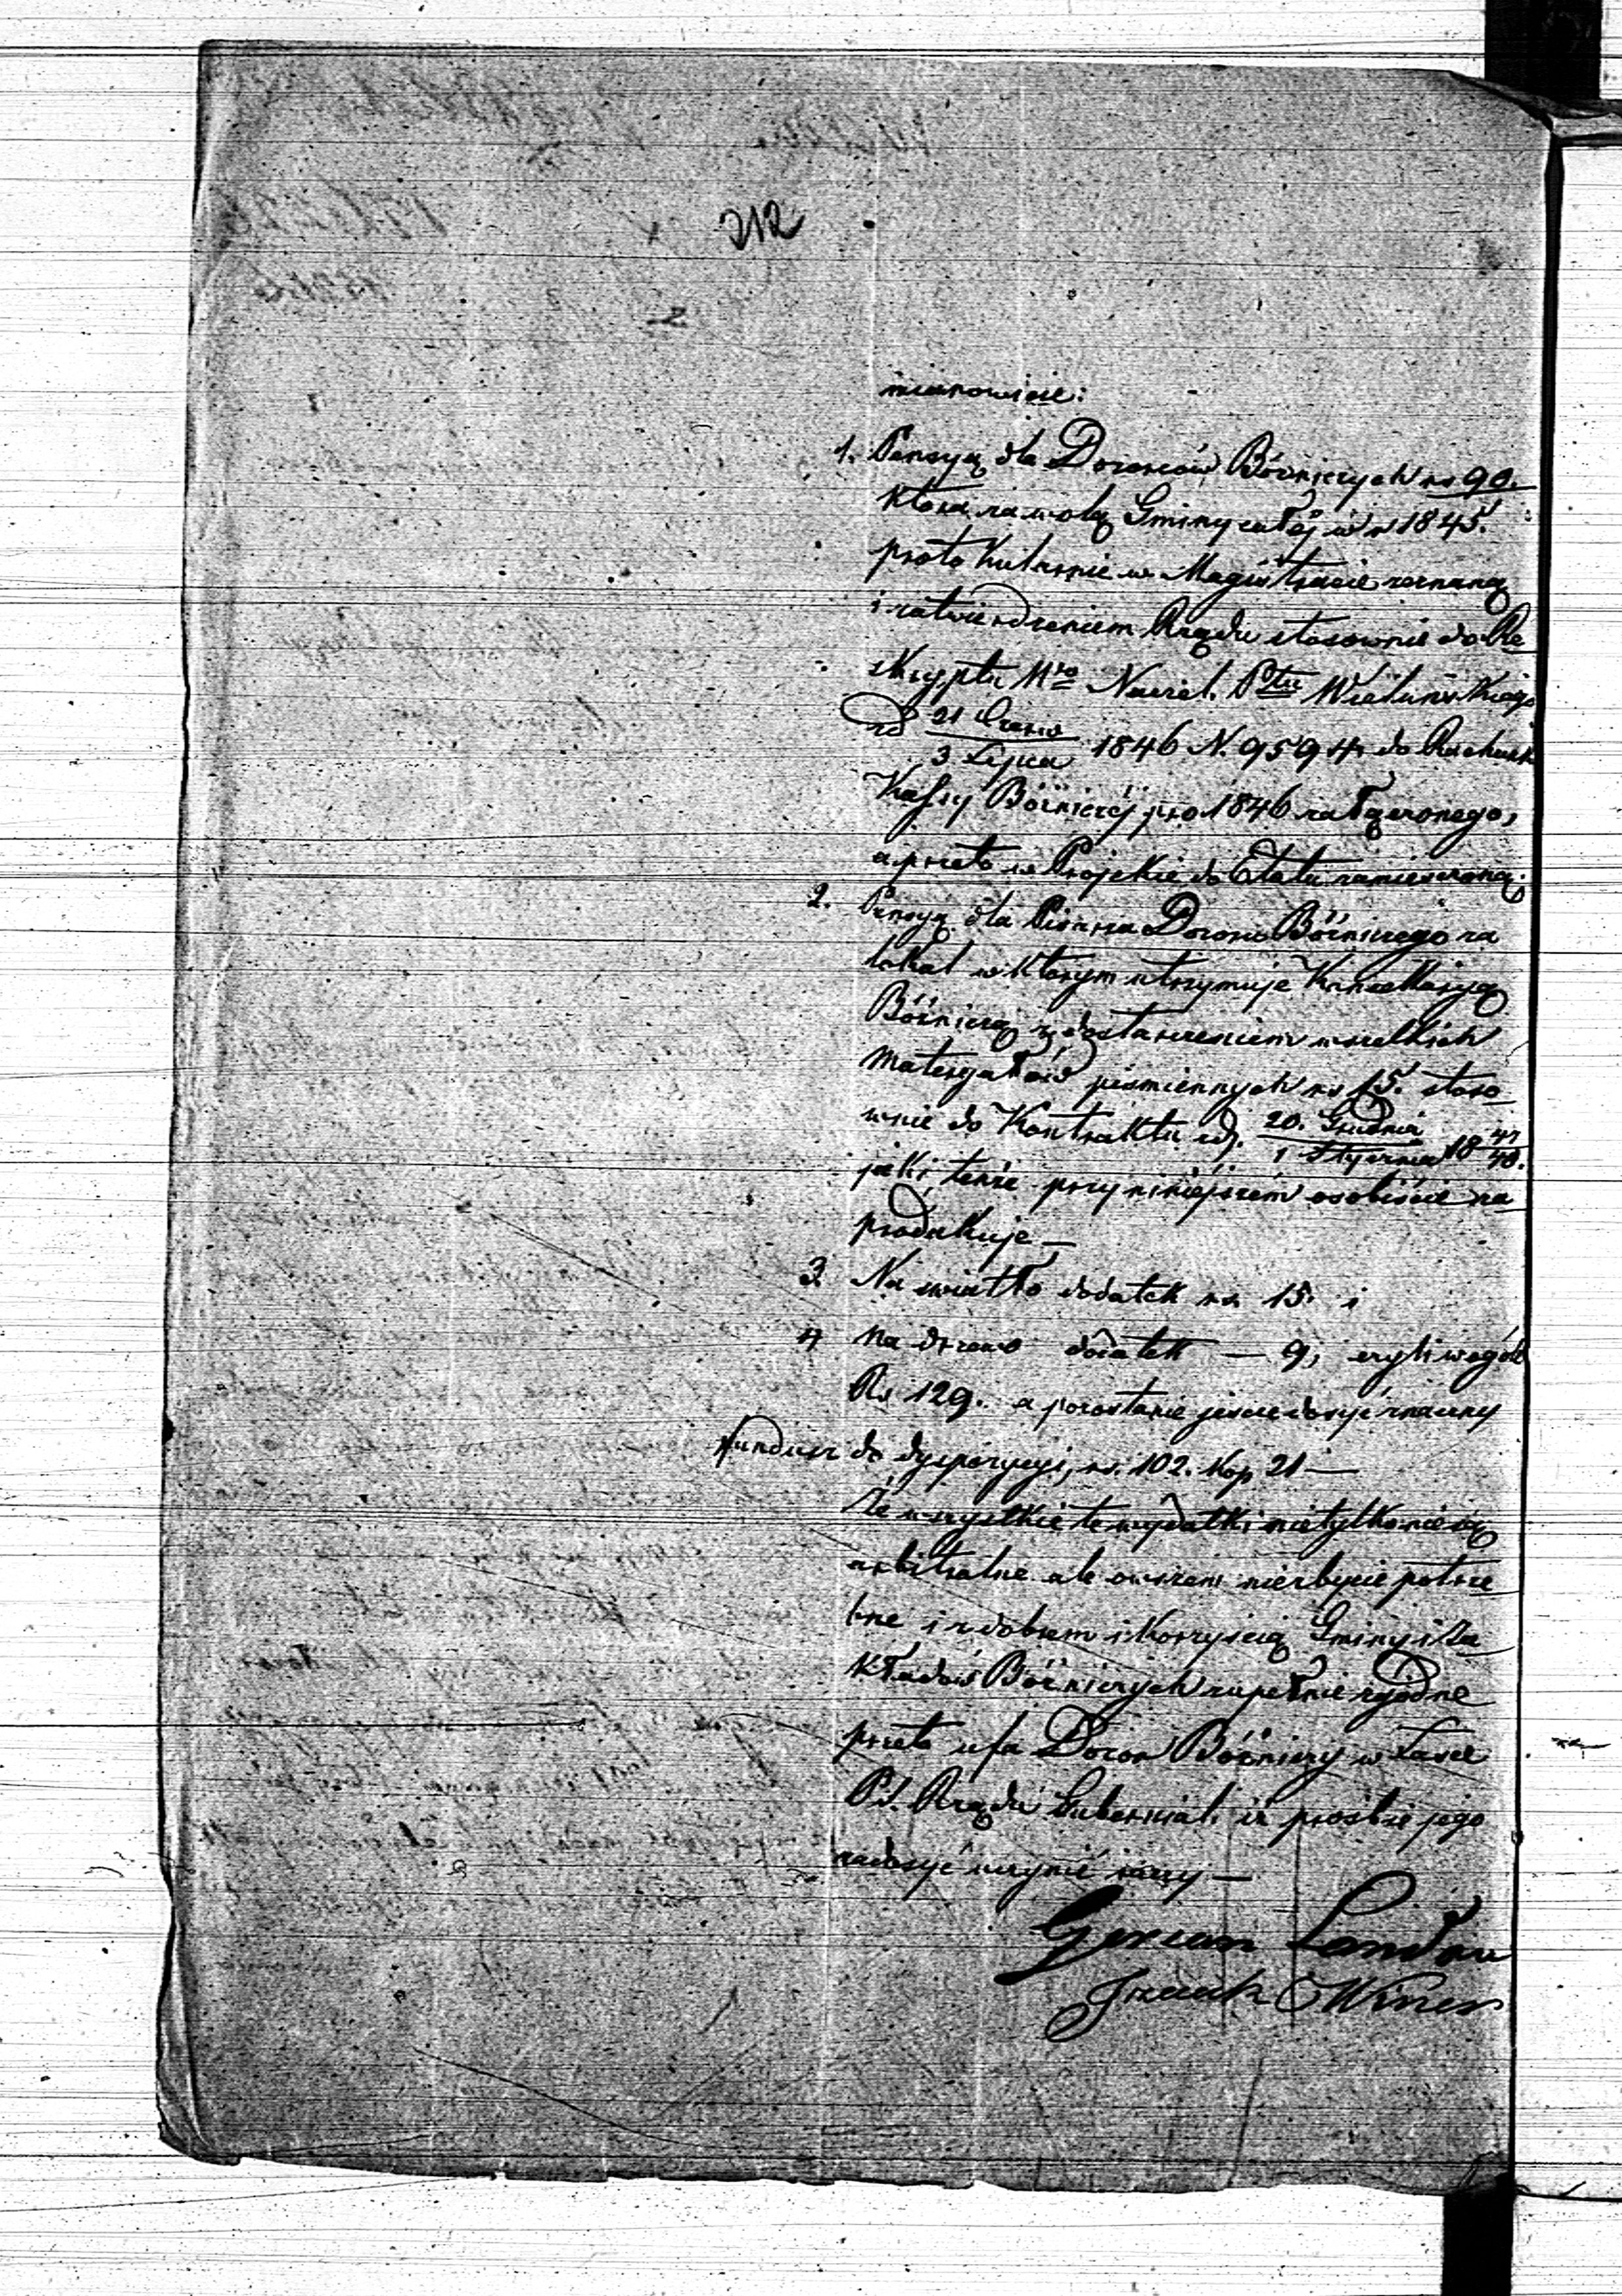 212
mianowicie:
1. Pensyą dla Dozorców Bóżniczych rs 90.
która za wolą Gminy całéj w r 1845.
protokularnie w Magistracie zeznaną
i zatwierdzeniem Rządu stosownie do Re
skryptu Naczel. Ptu Wieluńskiego
od 21 Czerw / 3 Lipca 1846 N. 9594 do Rachunk
Kassy Bóżniczéj pro 1846 załączonego,
a przeto w Projekcie do Etatu zamieszczoną.
2. Pensyą dla Pisarza Dozoru Bóżniczego za
lokal w którym utrzymuje Kancellaryą
Bóżniczą z dostarczeniem wszelkich
materyałów piśmiennych rs 15. stoso
wnie do Kontraktu z d. 20. Grudnia / 1 Stycznia 18 47/48.
jaki tenże przy niniéjszém osobiście za
produkuje —
3. Na światło dodatek rs. 15. i
4 na drzewo dodatek — 9, czyli wogóle
Rs 129. a pozostanie jeszcze dosyć znaczny
fundusz do dyspozycyi, rs. 102. kop 21 —
Że wszystkie te wydatki nietylko nie są
arbitralne ale owszem niezbycie potrze
bne i z dobrem i korzyścią Gminy i Za
kładów Bóżniczych zupełnie zgodne
przeto ufa Dozór Bóżniczy w Łasce
Rządu Gubernial. iż prośbie jego
zadosyć uczynić raczy —
Gerson Landau
Izaak Winer